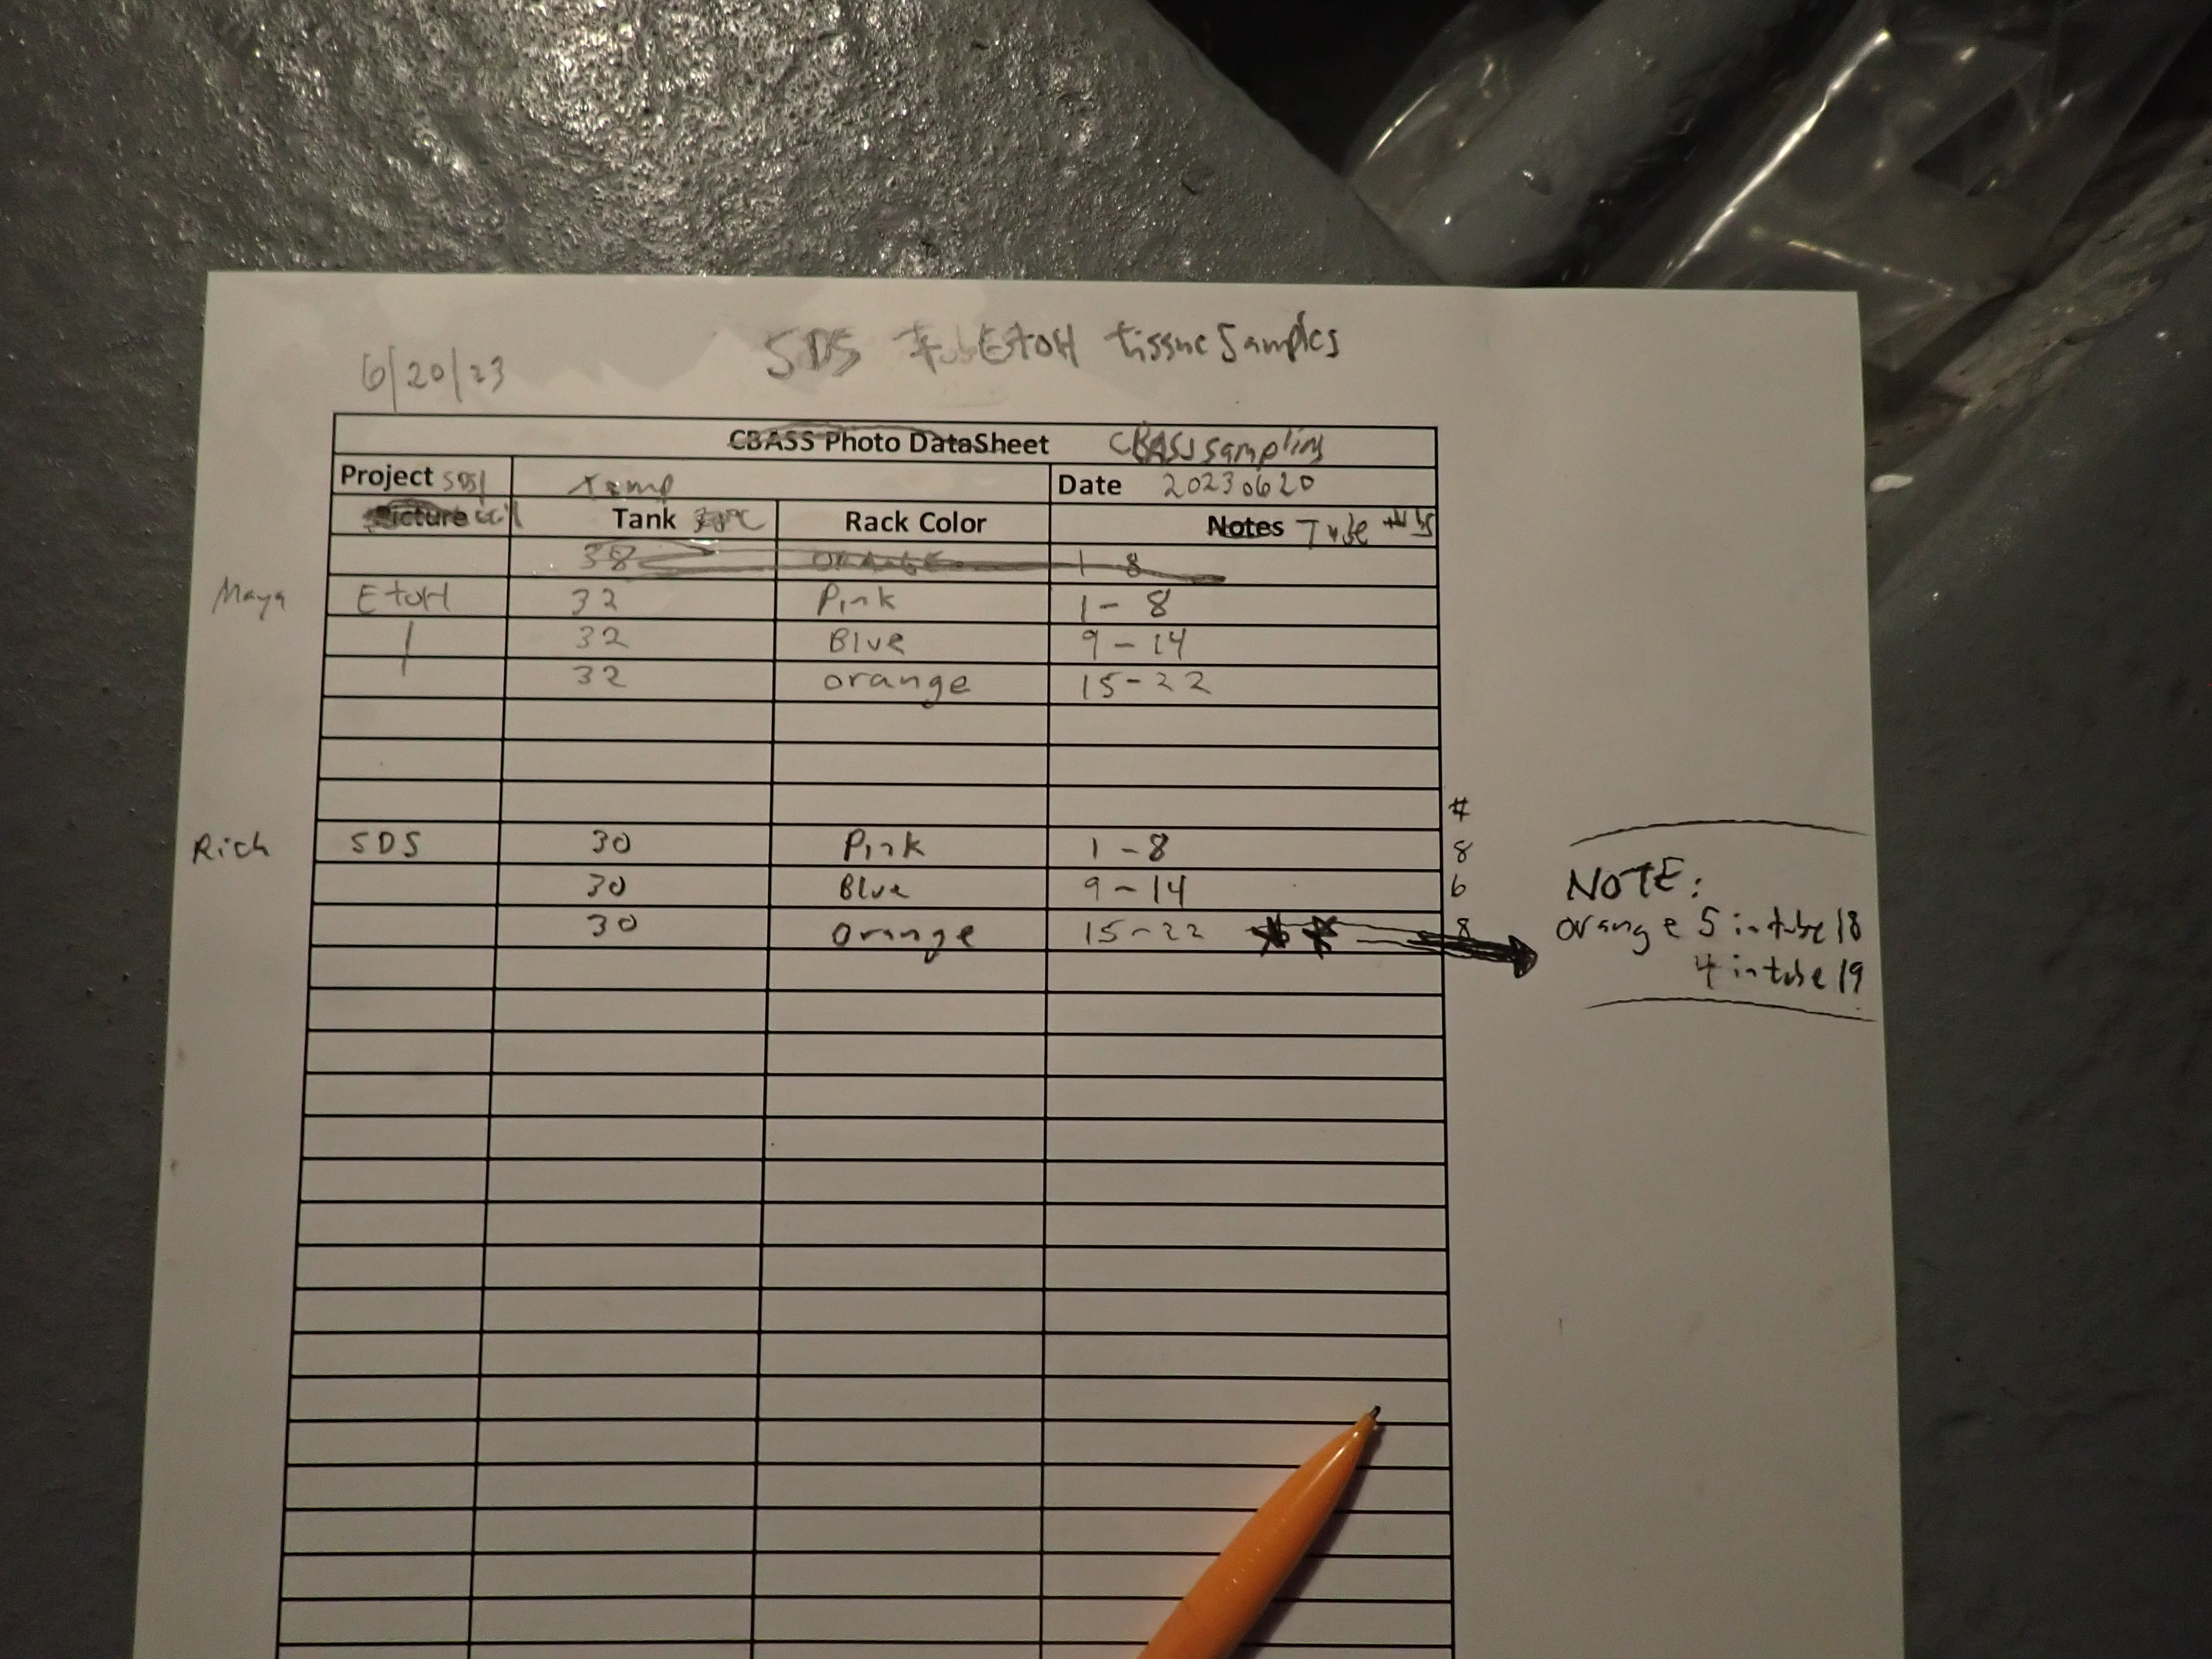 SDS EtOH tissue Samples
6/20/23
CBASS Photo DataSheet CBASS sampling
Project SDS Temp Date 20230620
Picture Tank Rack Color Notes Tube
38 ORANGE 1 8
Maya EtOH 32 Pink 1 - 8
32 Blue 9 - 14
32 orange 15 - 22
#
Rich SDS 30 Pink 1 - 8 8
30 Blue 9 - 14 6
30 orange 15 - 22 ** 8
NOTE:
orange 5 in tube 18
4 in tube 19